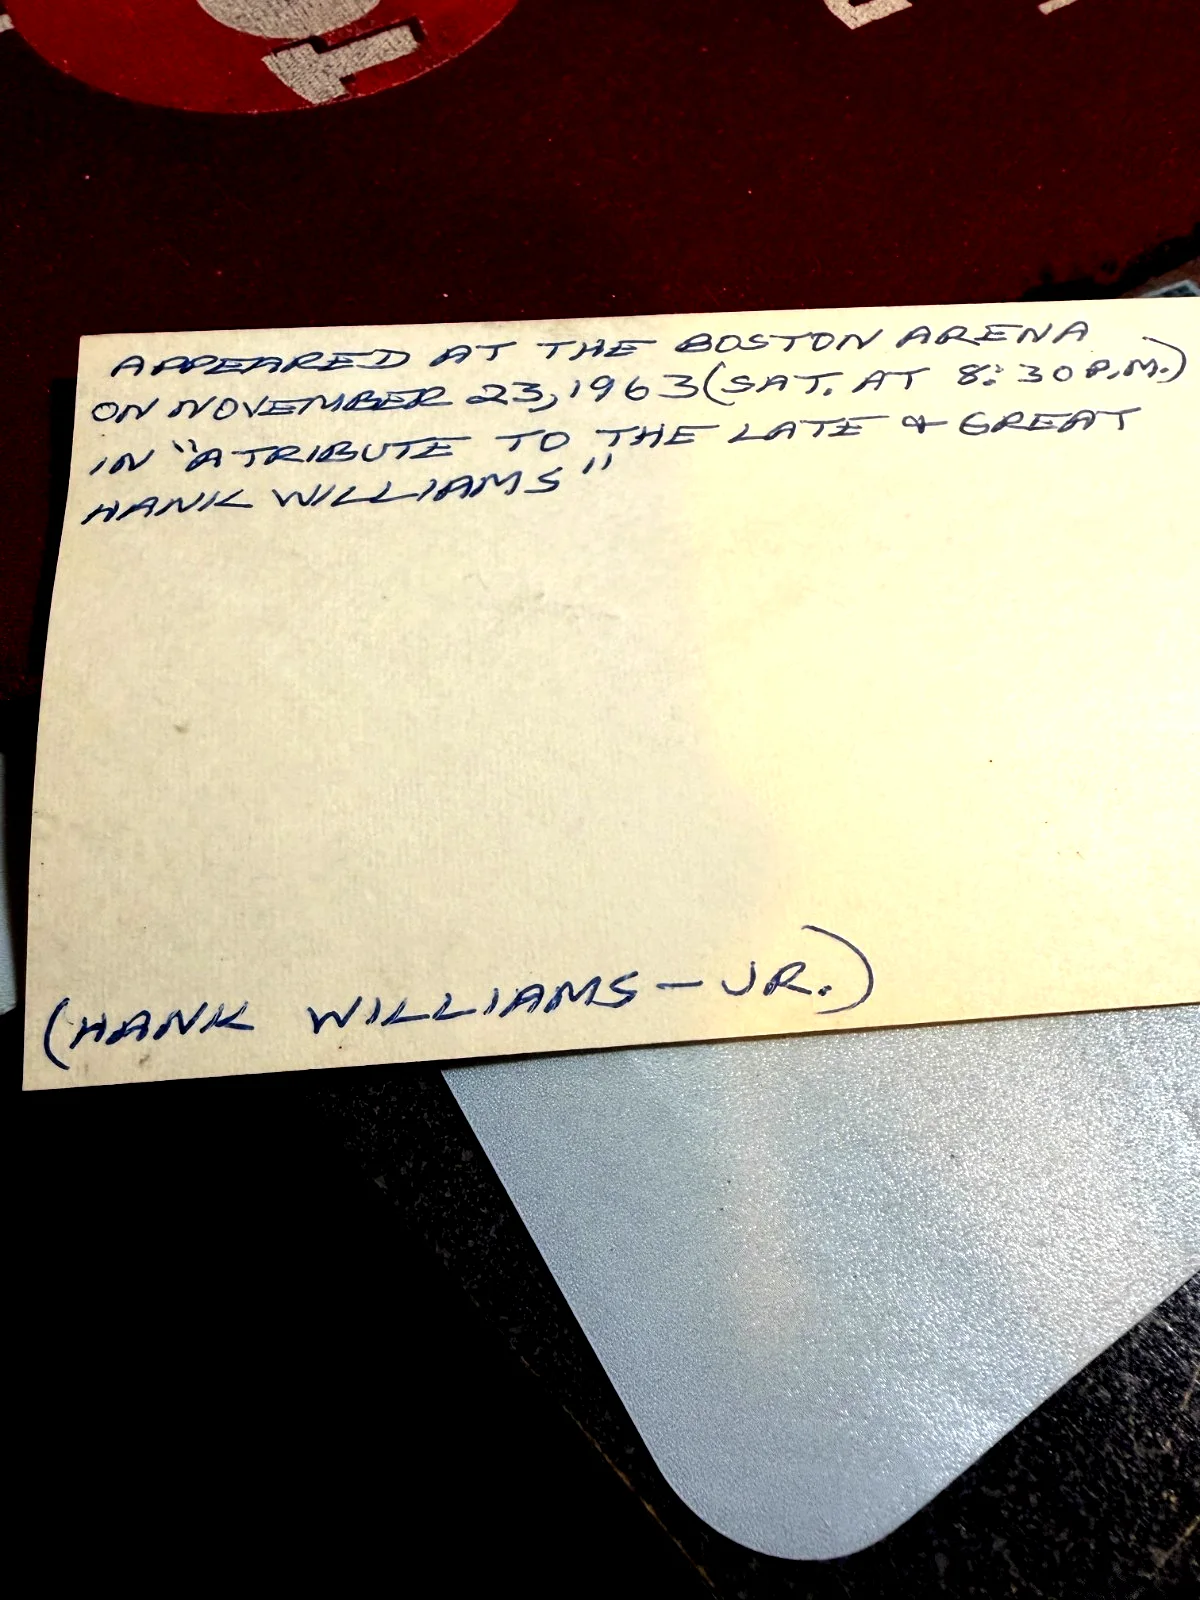 APPEARED AT THE BOSTON ARENA
ON NOVEMBER 23, 1963 (SAT. AT 8:30 P.M.)
IN "A TRIBUTE TO THE LATE & GREAT
HANK WILLIAMS"
(HANK WILLIAMS - JR.)